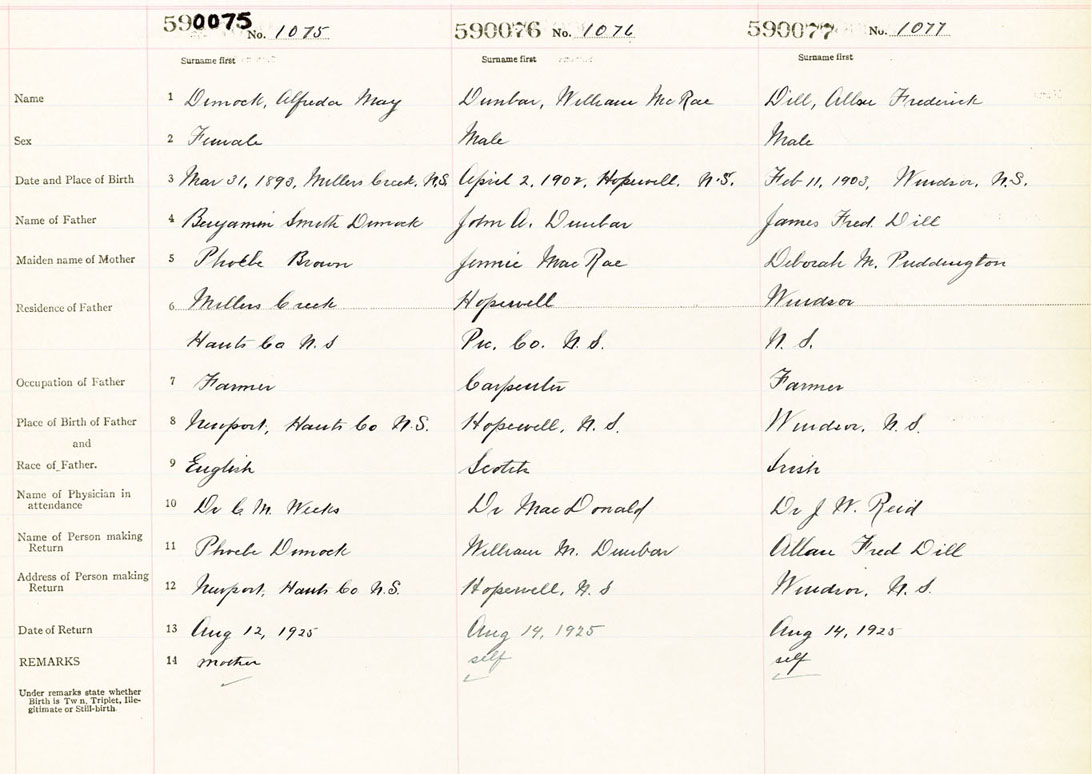 590075 No. 1075 590076 No. 1076 590077 No. 1077
Surname first Surname first Surname first
Name 1 Dimock, Alfreda May Dunbar, William McRae Dill, Allan Frederick
Sex 2 Female Male Male
Date and Place of Birth 3 Mar 31, 1893, Millers Creek. N.S. April 2, 1902, Hopewell, N.S. Feb 11, 1903, Windsor, N.S.
Name of Father 4 Benjamin Smith Dimock John A. Dunbar James Fred. Dill
Maiden name of Mother 5 Phoebe Brown Jennie MacRae Deborah M. Puddington
Residence of Father 6 Millers Creek Hopewell Windsor
Hants Co N.S Pic. Co. N.S. N.S.
Occupation of Father 7 Farmer Carpenter Farmer
Place of Birth of Father 8 Newport, Hants Co N.S. Hopewell, N.S. Windsor, N.S.
and
Race of Father. 9 English Scotch Irish
Name of Physician in
attendance 10 Dr C. M. Weeks Dr MacDonald Dr J. W. Reid
Name of Person making
Return 11 Phoebe Dimock William M. Dunbar Allan Fred Dill
Address of Person making
Return 12 Newport, Hants Co N.S. Hopewell, N.S Windsor, N.S.
Date of Return 13 Aug 12, 1925 Aug 14, 1925 Aug 14, 1925
REMARKS 14 mother self self
Under remarks state whether
Birth is Tw n, Triplet, Ille-
gitimate or Still-birth.